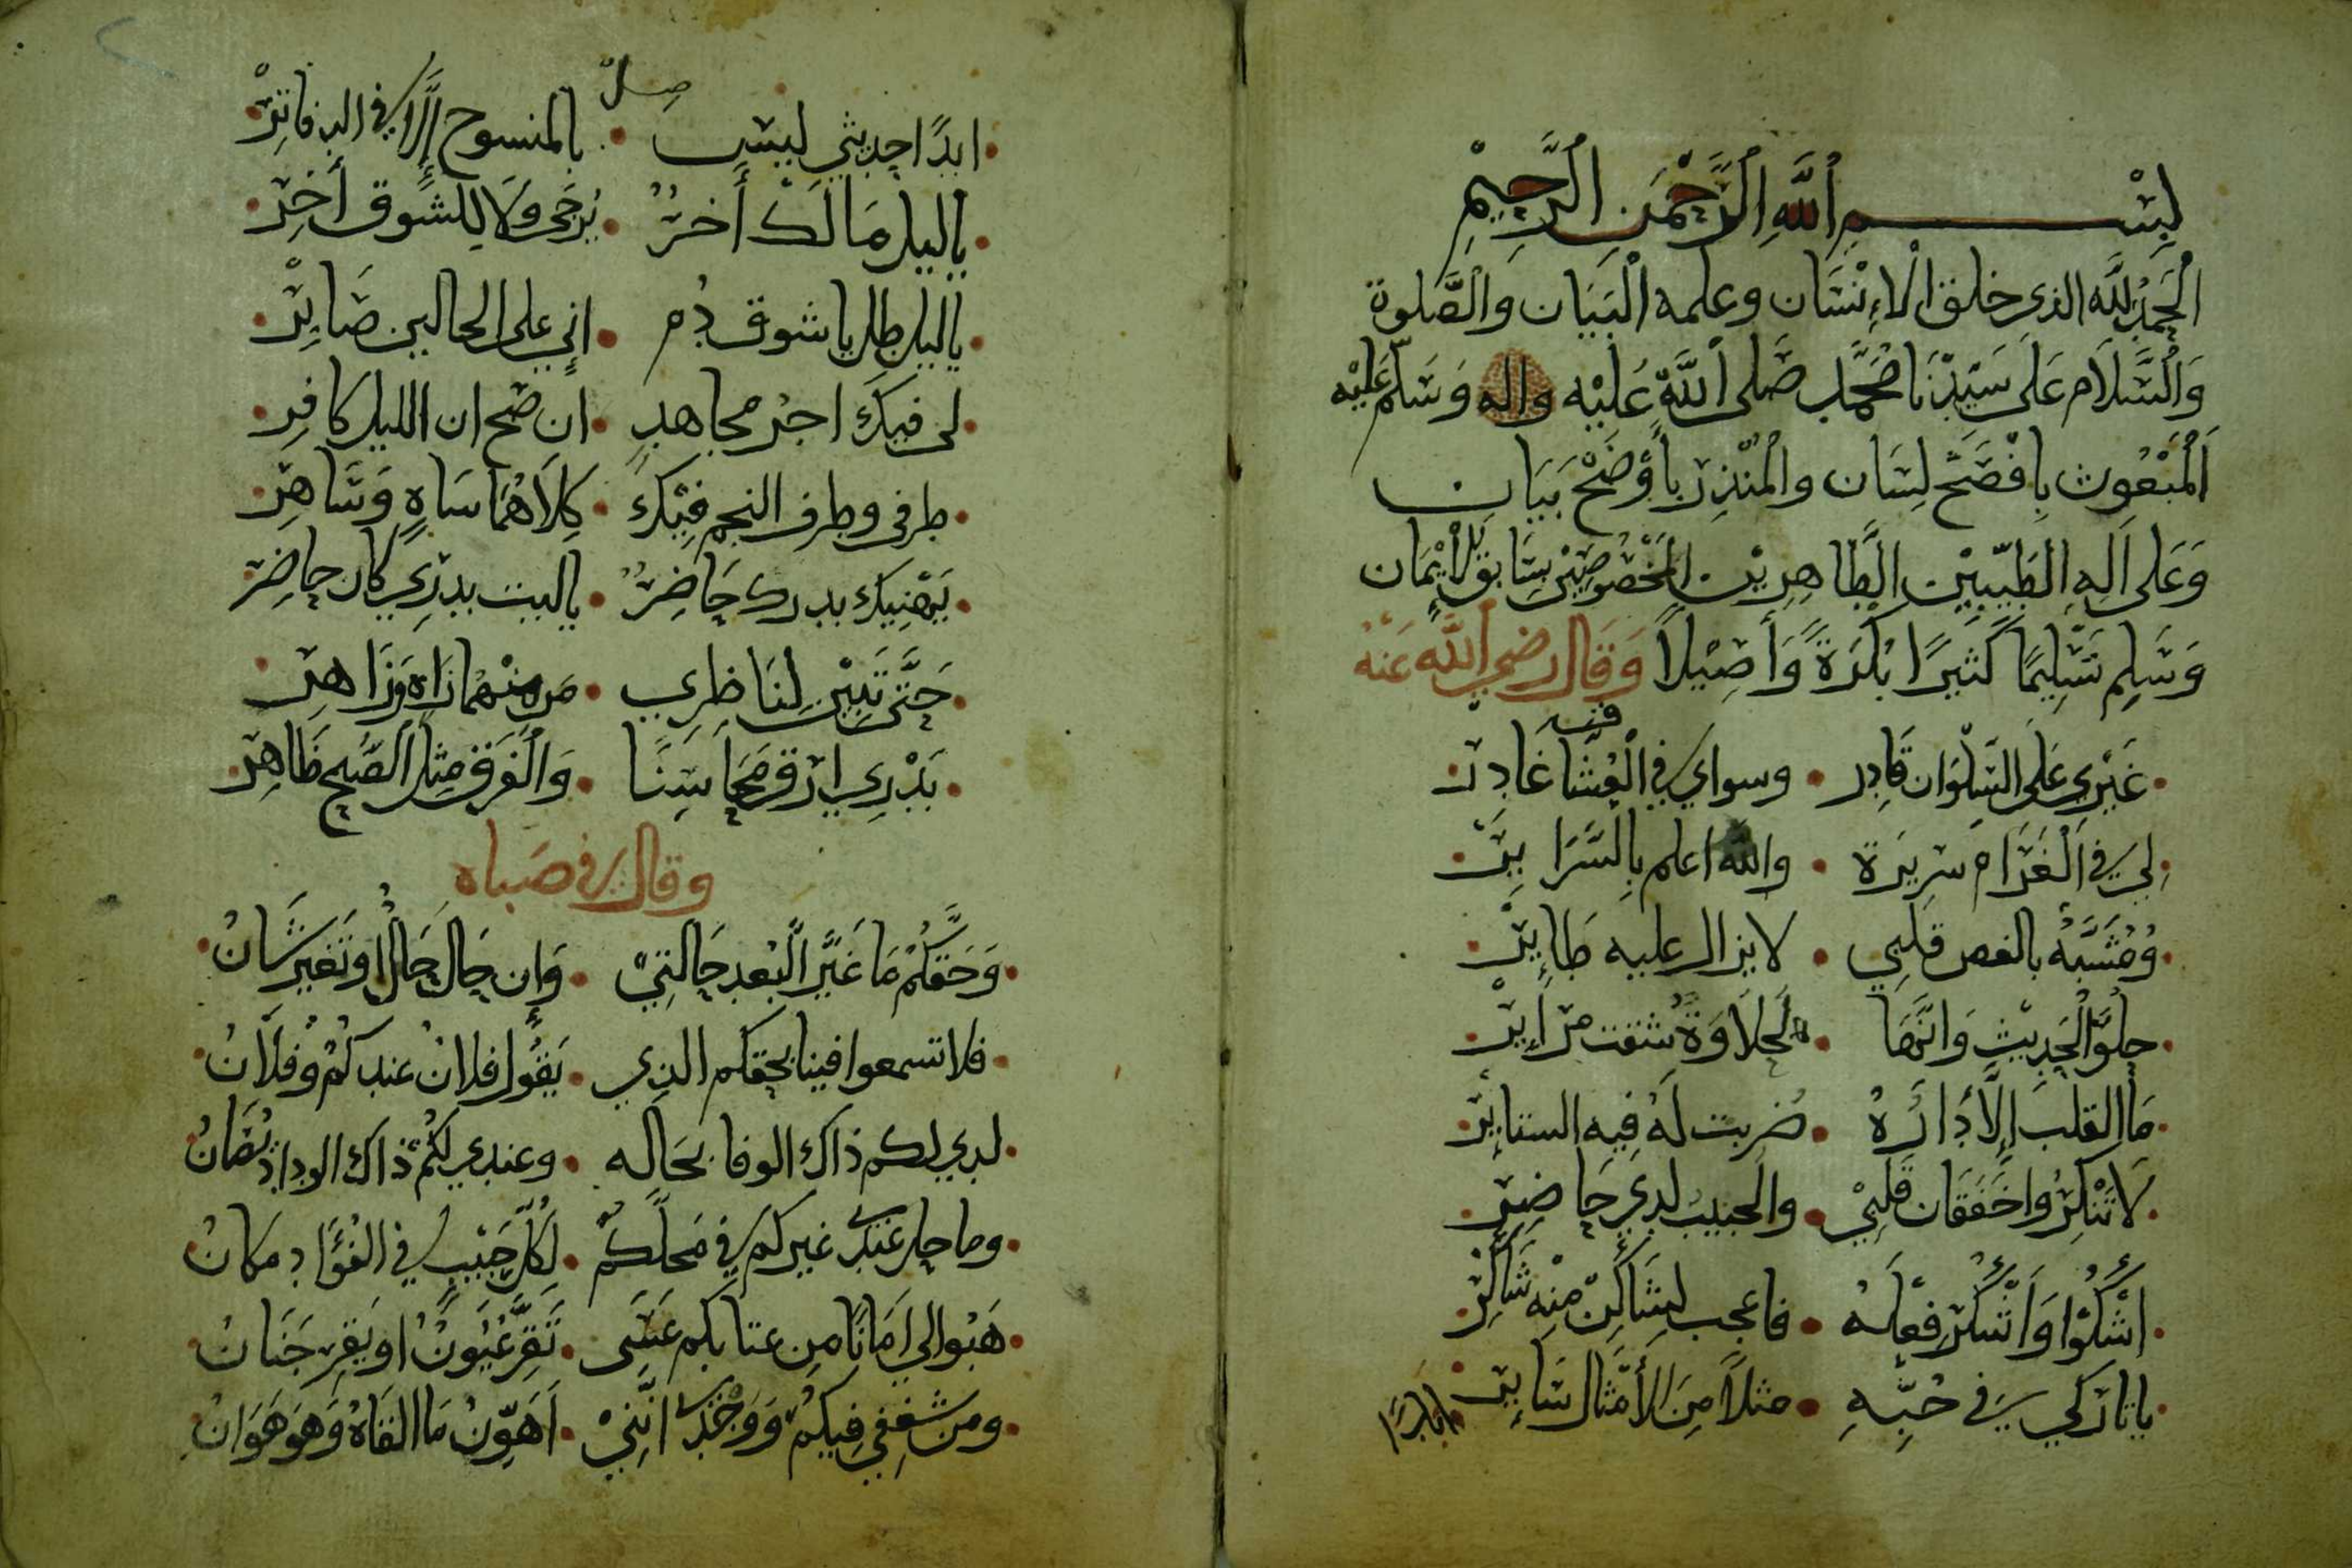 بِسْمِ اللَّهِ الرَّحْمَنِ الرَّحِيْمِ
الْحَمْدُ لِلَّهِ الذي خلق الْاِنْسَان وعلمه الْبَيَان وَالْصَّلوة
وَالْسَّلَام عَلَى سَيِّدْنَا مُحَمَّد صَلى اللَّه عَلَيْه واله وَسَلم عَليْه
اَلْمَبْعُوث بِافْصَح لِسَان والْمُنْذِر بِأَوْضَحْ بَيَان
وَعَلى اَلِهِ الطَيِّبِيْن الِطَّاهِرِيْن الْمَخْصُوصِيْن بِسَابِق الْاِيْمَان
وَسَلِم تَسْلِيمًا كَثيرًا بُكْرَةً وَأَصِيْلاً وَقَال رضي اللَّه عَنْهُ
غَيْري عَلَى السَلْوَان قَادِر • وسواي في الْعُشَّاق غَادِر
لِي في الْغَرَام سَرِيرَة • والله اعلم بِالسَّرَايِر
وُمُشَبَّهٌ بالغصن قلبي • لا يزال عليه طَايِر
حلْوُ الْحَدِيْثِ وَانَّهَا • لَحَلَاوَةٌ شققت مَرَايِر
مَا القلب إِلَّا دَارَهُ • ضُرِبت لَهُ فِيه الستاير
لَا تَنْكِرُوا خَفَقَان قَلْبِيْ • والحبيبُ لدي حَاضِر
اشْكُوْا وَأَشْكُرُ فِعْلَهُ • فاعجب لِشَاكٍ مِنْه شَاكِرْ
يا تارِكي في حُبِّهِ • مثلاً مِنَ الْأَمْثَال سَايِر
ابدًا
ابدًا حديثي ليسَ • بالمنسوخ إِلَّا في الدفاتِرْ
يا ليل مَا لَكَ أَخرٌ • يُرجَى وَلَا لِلشَّوق أَخِر
يا ليل طل يا شوق دُم • اني على الحالين صَابِرْ
لى فيكَ اجْر مجاهدٍ • ان صَح ان الليل كافِر
طرفى وطرف النجم فِيْكَ • كِلَاهُمَا سَاهٍ وَسَاهِر
يَهْنِيك بدرك حَاضِرٌ • يا ليت بدرِي كان حاضِر
حَتَّى تَبِيْن لِنَاظِرِي • مَن مِنْهُمَا زَاهٍ وَزَاهِر
بَدْرِي ارَقّ مَحَاسِنًا • وَالْفَرق مِثل الصُبح ظَاهِر
وقال في صَبَاه
وَحَقِّكُمْ مَا غَيَّرَ الْبُعد حَالَتِيْ • وَاِن حَال حَالٌ او تَغير شَانُ
فلا تسمعوا فينا بحقكم الذي • يَقُول فلانٌ عندكُمْ وُفلَانُ
لدي لكم ذاك الوفا بحَاله • وعندي لكُمْ ذاك الوداد يُصَانُ
وما حل عندي غيركم في مَحلِّكُمْ • لِكُلّ حَبْيبٍ في الفُؤَاد مَكانُ
هَبُوا لي اَمَانًا من عتابكم عَسَى • تَقِرّ عُيُونٌ او يَقِر جَنَانُ
ومن شغفي فِيكُمْ وَوَجْدي انَّنِيْ • اَهَوِّنُ مَا القَاهُ وَهوَ هَوَانُ